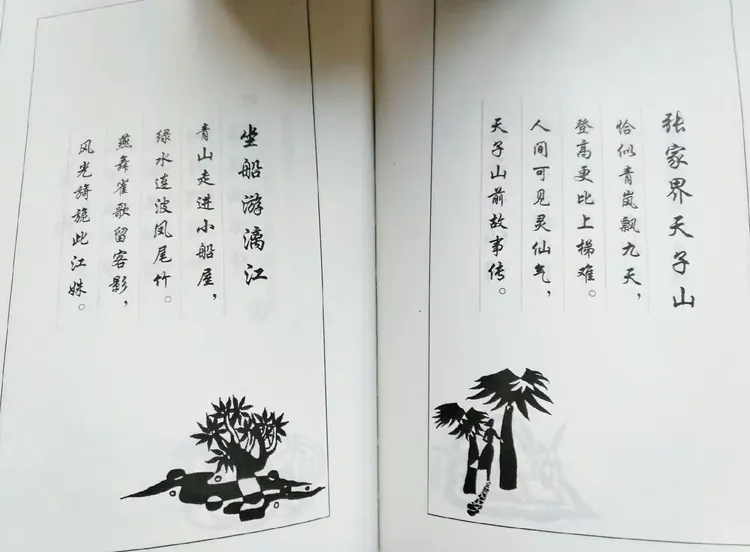 张家界天子山
恰似青岚飘九天，
登高更比上梯难。
人间可见灵仙气，
天子山前故事传。
坐船游漓江
青山走进小船屋，
绿水连波凤尾竹。
燕舞雀歌留客影，
风光旖旎此江姝。